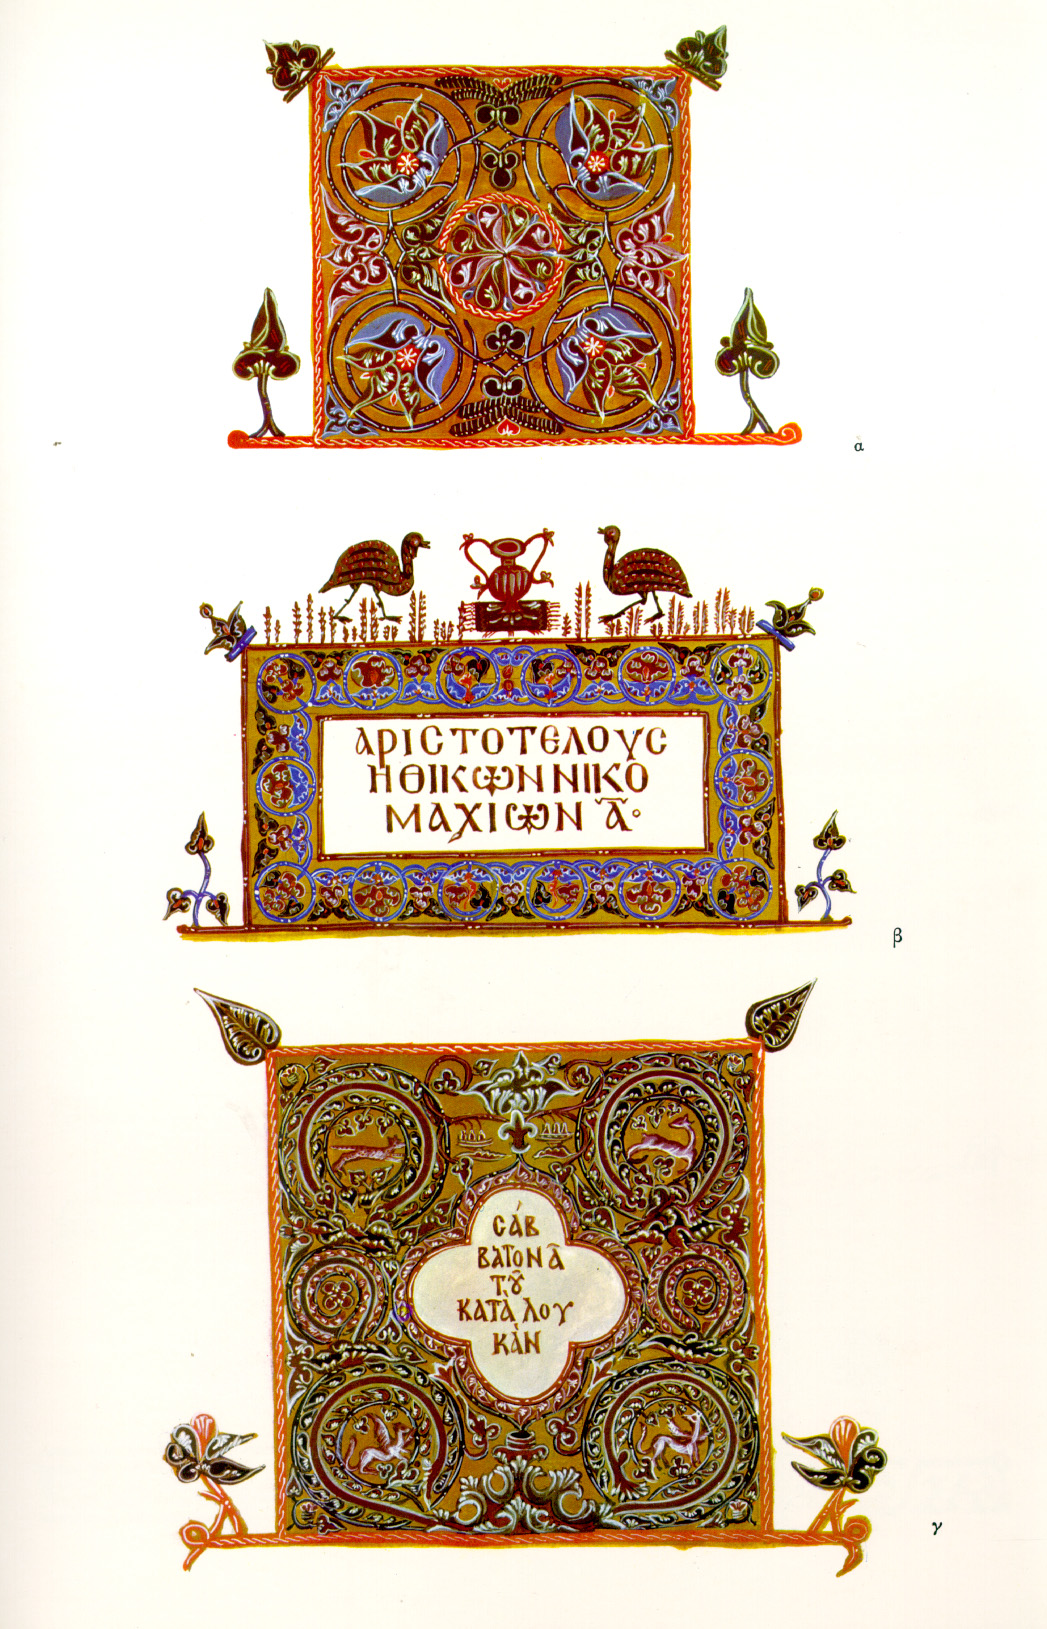 α
ΑΡΙСΤΟΤΕΛΟΥС
ΗΘΙΚΩΝΝΙΚΟ
ΜΑΧΙΩΝ Α̅·
β
СΆΒ
ΒΑΤΟΝ Α̅
Τ͂Ȣ
ΚΑΤᾺ ΛΟΥ
ΚᾺΝ
γ